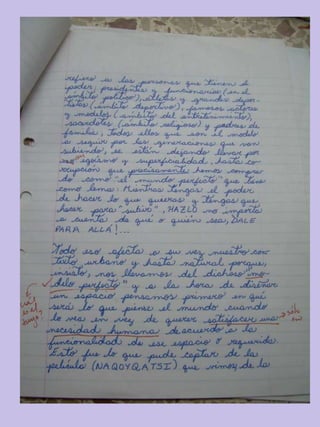 refiero a las personas que tienen el
poder; presidentes y funcionarios (en el
ámbito político), atletas y grandes depor-
tistas (ámbito deportivo), famosos actores
y modelos (ámbito del entretenimiento),
sacerdotes (ámbito religioso) y padres de
familia; todos ellos que son el modelo
a seguir por las generaciones que van
subiendo, se están dejando llevar por
ese egoísmo y superficialidad, hasta co-
rrupción que precisamente hemos compra-
do como "el mundo perfecto" que lleva
como lema: Mientras tengas el poder
de hacer lo que quieras y tengas que
hacer para "subir", HAZLO no importa
a cuenta de qué o quién sea, DALE
PARA ALLÁ!...
Todo eso afecta a su vez nuestro con-
texto urbano y hasta natural porque,
insisto, nos llevamos del dichoso "mo-
delo perfecto" y a la hora de diseñar
un espacio pensamos primero en qué
será lo que piense el mundo cuando
lo vea en vez de querer satisfacer una
necesidad humana de acuerdo a la
funcionalidad de ese espacio requerida.
Esto fue lo que pude captar de la
película (NAQOYQATSI) que vimos, de la